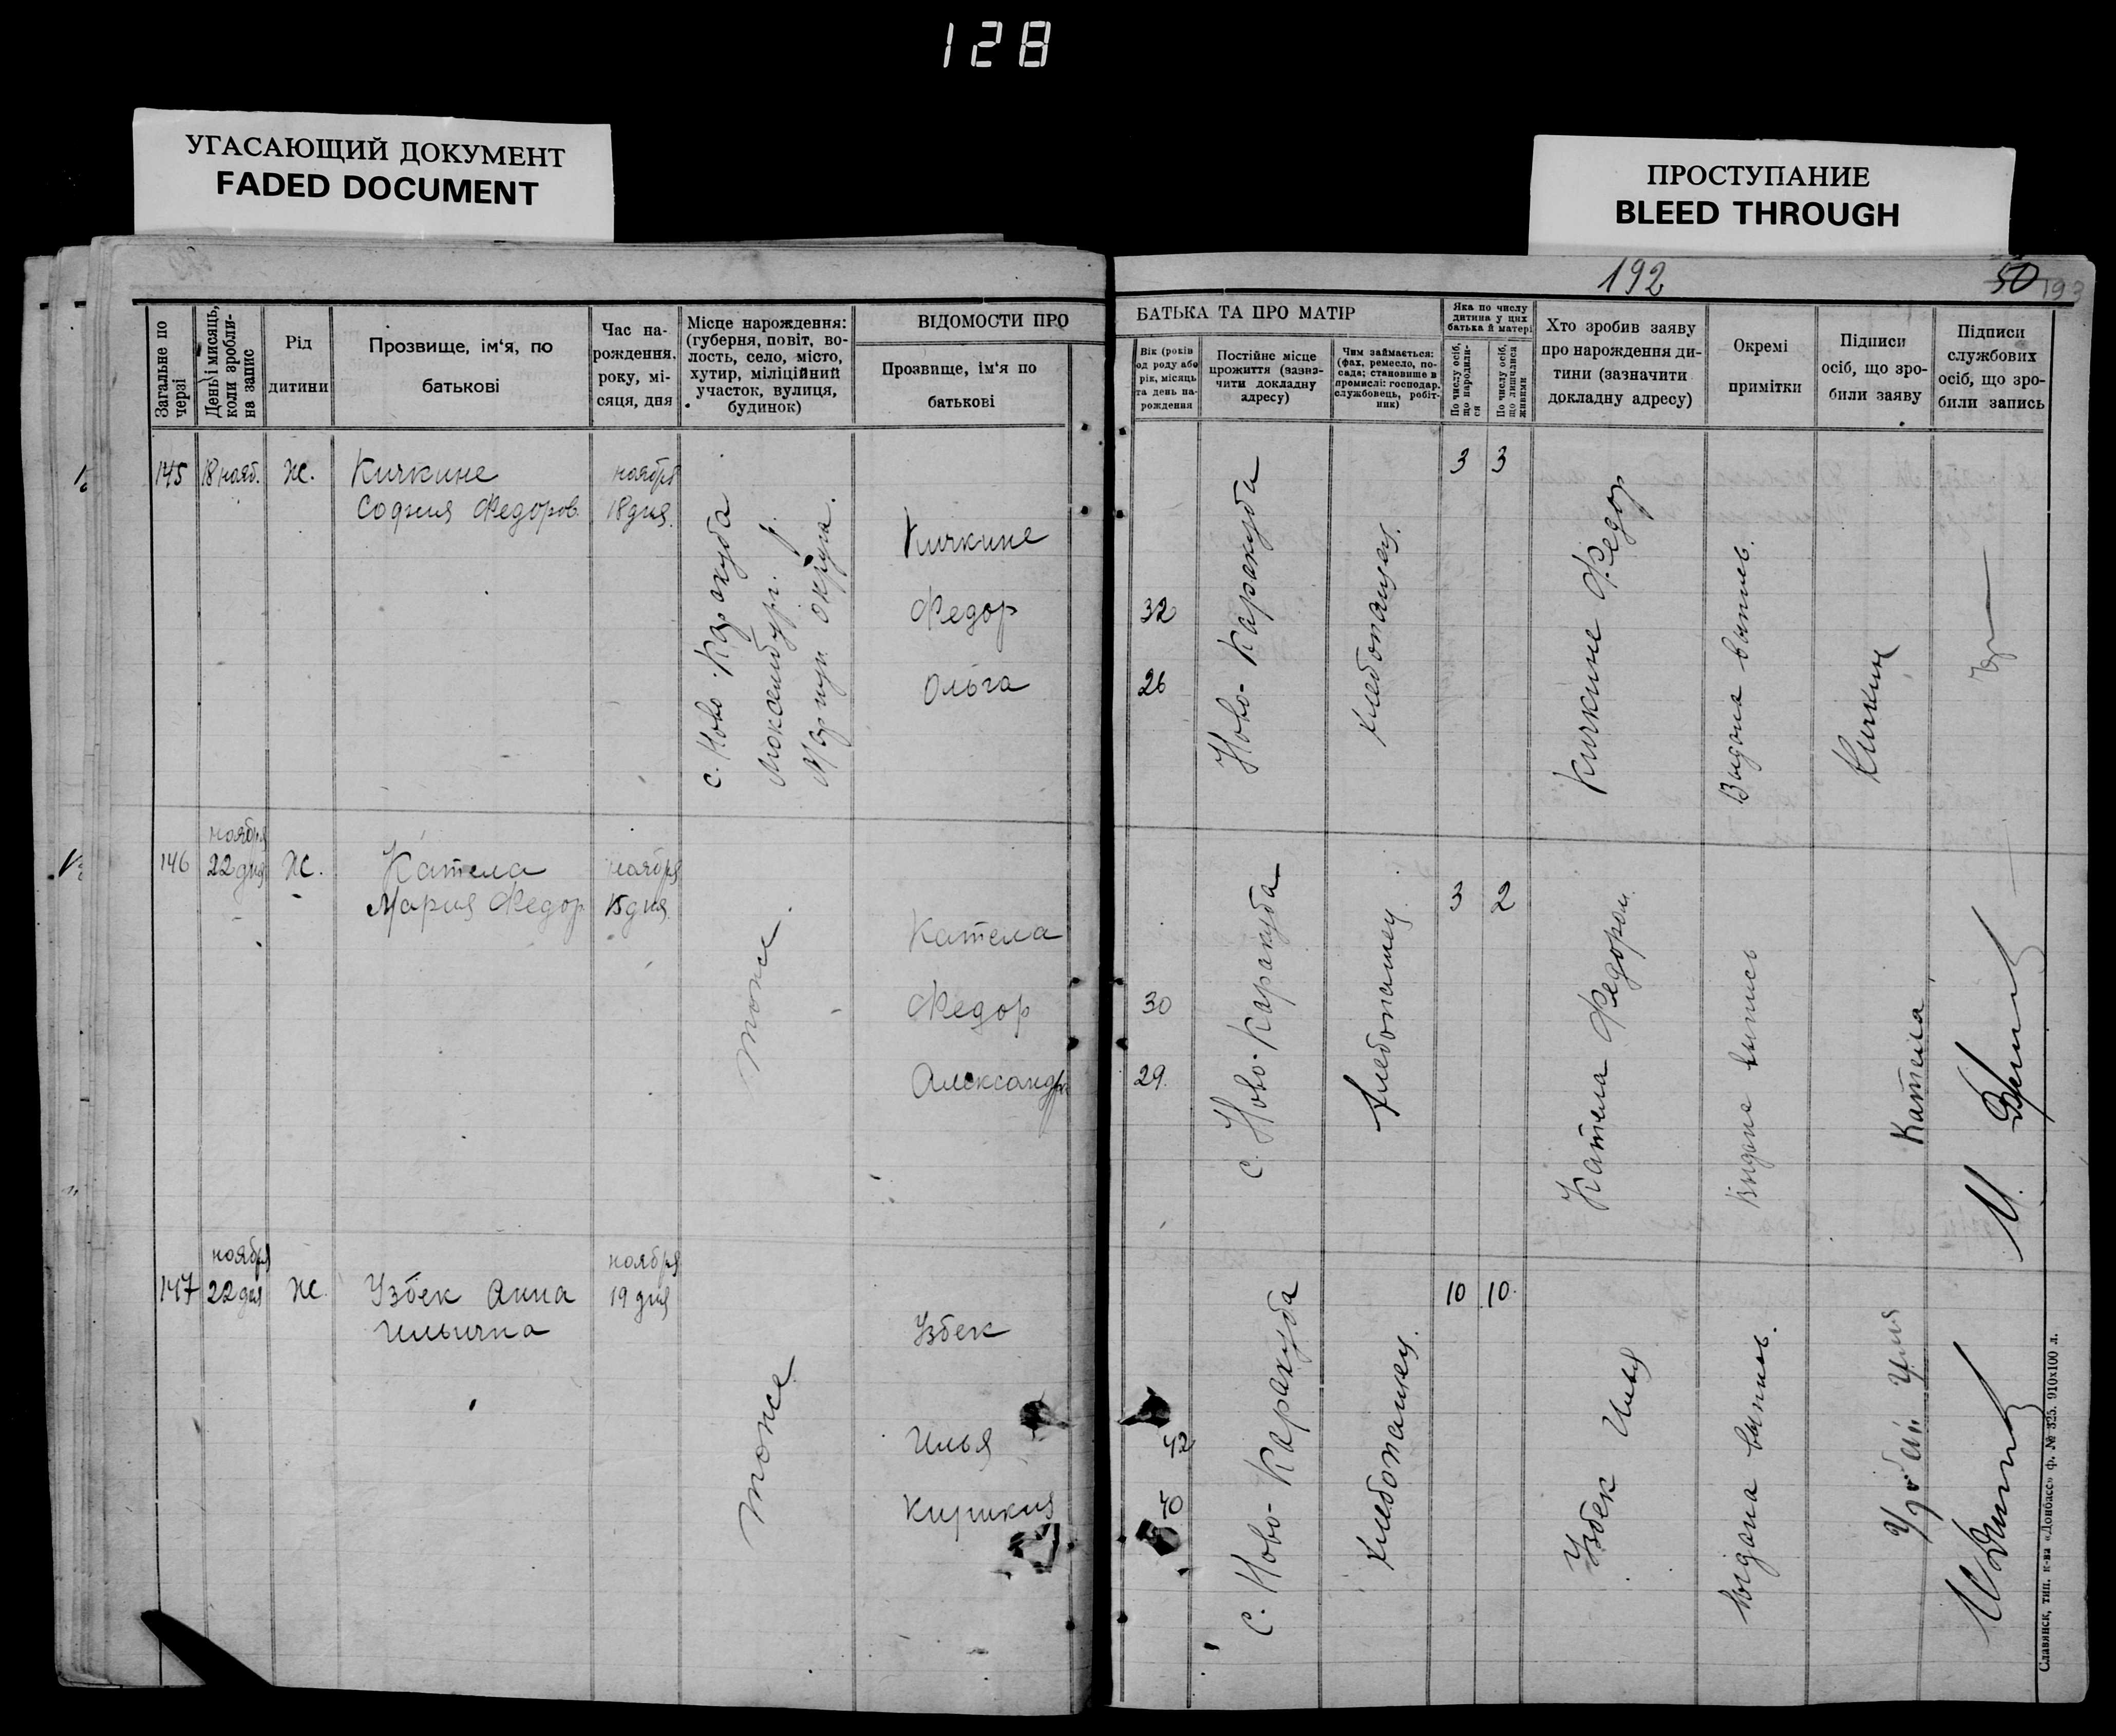 128
УГАСАЮЩИЙ ДОКУМЕНТ
FADED DOCUMENT
ПРОСТУПАНИЕ
BLEED THROUGH
192
50
193
Загальне по черзі
День і місяць, коли зробли-на запис
Рід
дитини
Прозвище, ім'я, по
батькові
Час на-
рождення,
року, мі-
сяця, дня
Місце нарождення:
(губерня, повіт, во-
лость, село, місто,
хутир, міліційний
участок, вулиця,
будинок)
ВІДОМОСТИ ПРО
Прозвище, ім'я по
батькові
БАТЬКА ТА ПРО МАТІР
Вік (років
од роду або
рік, місяць
та день на-
рождення
Постійне місце
прожиття (зазна-
чити докладну
адресу)
Чим займається:
(фах, ремесло, по-
сада; становище в
промислі: господар,
службовець, робіт-
ник)
Яка по числу
дитина у цих
батька й матері
По числу осіб,
що народили-
ся
По числу осіб,
що лишилися
живими
Хто зробив заяву
про нарождення ди-
тини (зазначити
докладну адресу)
Окремі
примітки
Підписи
осіб, що зро-
били заяву
Підписи
службових
осіб, що зро-
били запись
145
18 нояб.
Ж.
Кичкине
София Федоров.
ноября
18 дня.
с. Ново Каракуба
Люксембург.
Мариуп. округа.
Кичкине
Федор
Ольга
32
26
Ново-Каракуба
хлебопашец.
3
3
Кичкине Федор
Видана выпись.
Кичкин
146
ноября
22 дня
Ж.
Кателa
Мария Федор
ноября
15 дня.
тоже.
Катела
Федор
Александра
30
29.
с. Ново-Каракуба
хлебопашец.
3
2
Катела Федором.
Видане выпись
Катела
147
ноября
22 дня
Ж.
Узбек Анна
Ильична
ноября
19 дня
тоже
Узбек
Илья
Кирикия
42
40
с. Ново-Каракуба
хлебопашец.
10
10.
Узбек Илья
выдана выпись.
Славянск, тип. к-ва «Донбасс» ф. № 325. 910х100 л.